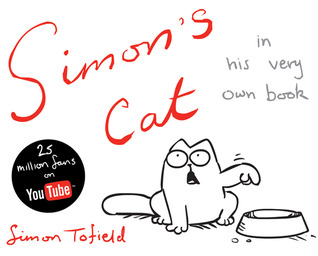 Simon's
Cat
in
his very
own book
25
million fans
on
YouTube™
Simon Tofield